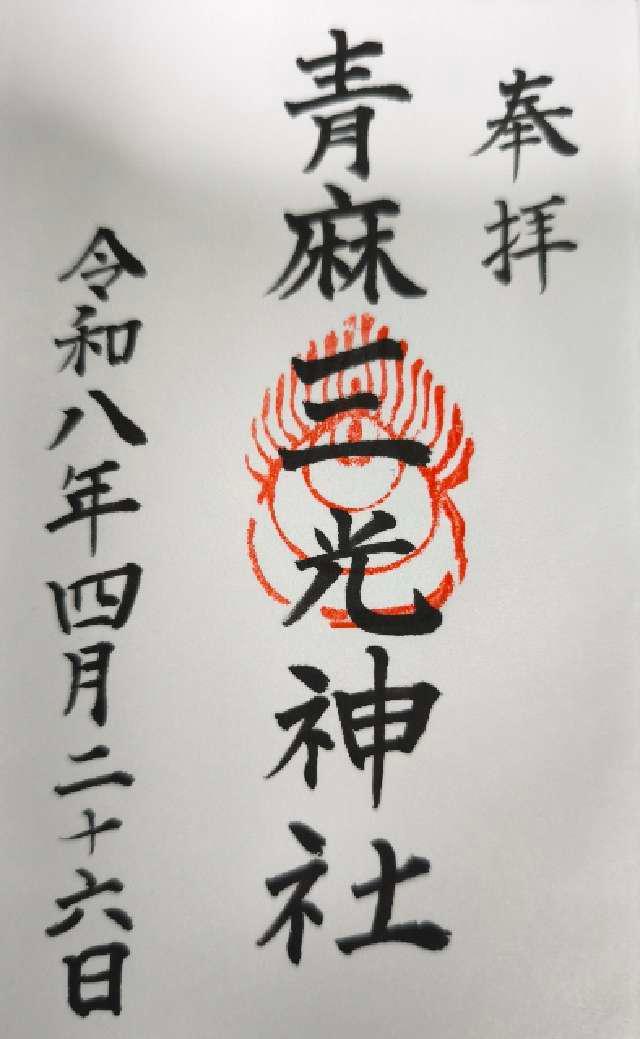 奉拝
青麻三光神社
令和八年四月二十六日